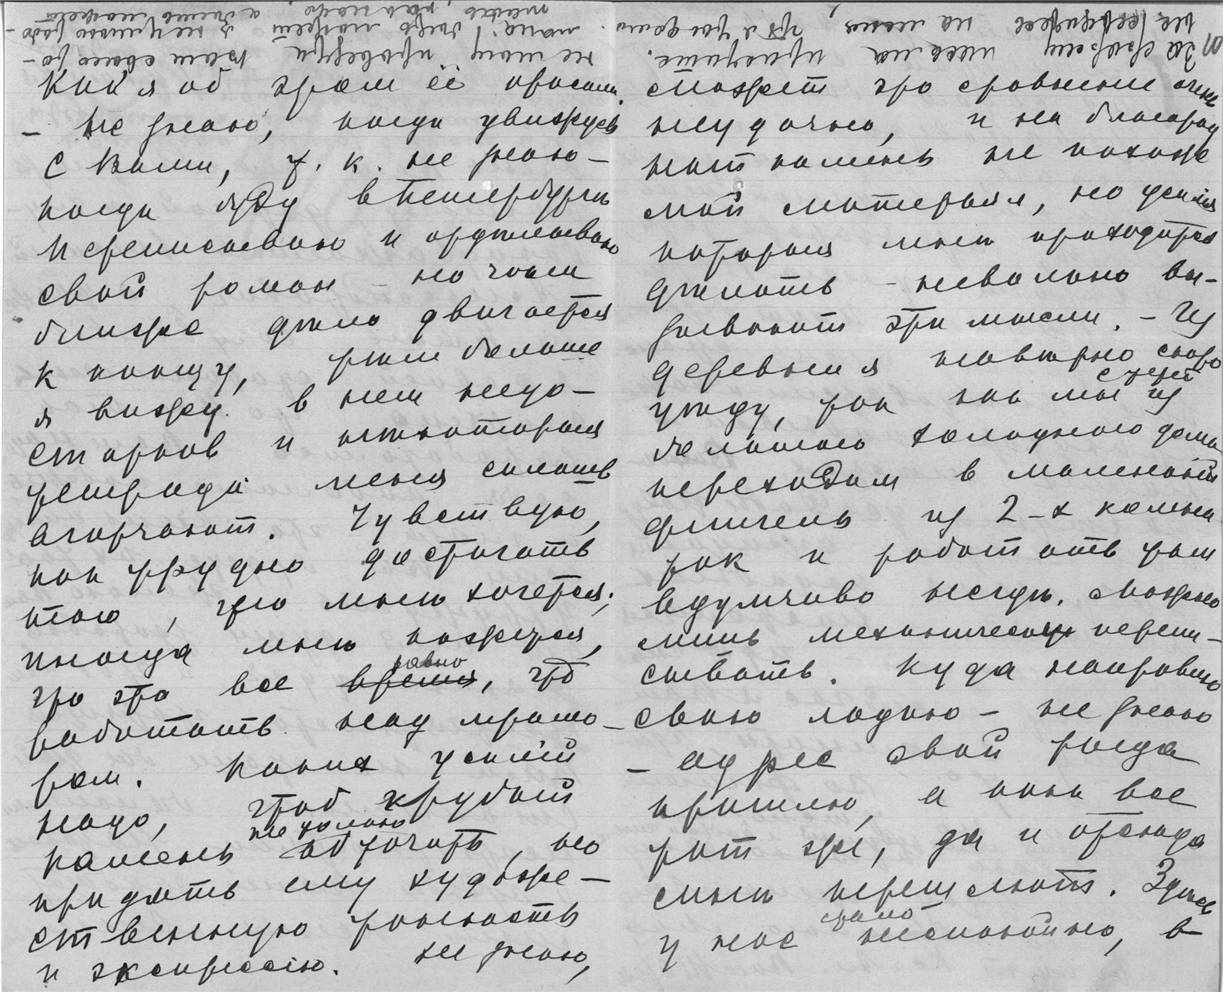 как я об этом её просила.
– Не знаю, когда увижусь
с Вами, т. к. не знаю –
когда буду в Петербурге
Переписываю и отделываю
свой роман – но чем
ближе дело двигается
к концу, тем больше
я вижу в нем недо-
статков и некоторые
меня сильно
огорчают. Чувствую,
как трудно достигать
того, что мне хочется;
иногда мне кажется,
что это все время равно, что
работать над мрамо-
ром. Каких усилий
надо, чтоб грубый
камень не только обточить, но
придать ему художе-
ственную тонкость
и экспрессию. Не знаю,
может это сравнение очень
неудачно, и на благород
ный камень не похож
мой матерьял, но усилия
которыя мне приходится
делать – невольно вы-
зывают эти мысли. – Из
деревни наверно скоро
уеду, так как мы из
большого холодного дома
переходим в маленький
флигель из 2-х комна
так и работать там
вдумчиво негде. можно
лишь механически перепи-
сывать. Куда направлю
свою ладью – не знаю
– адрес свой тогда
пришлю, а пока все
тот же, да и отсюда
мне перешлют. Здесь
у нас стало неспокойно, в